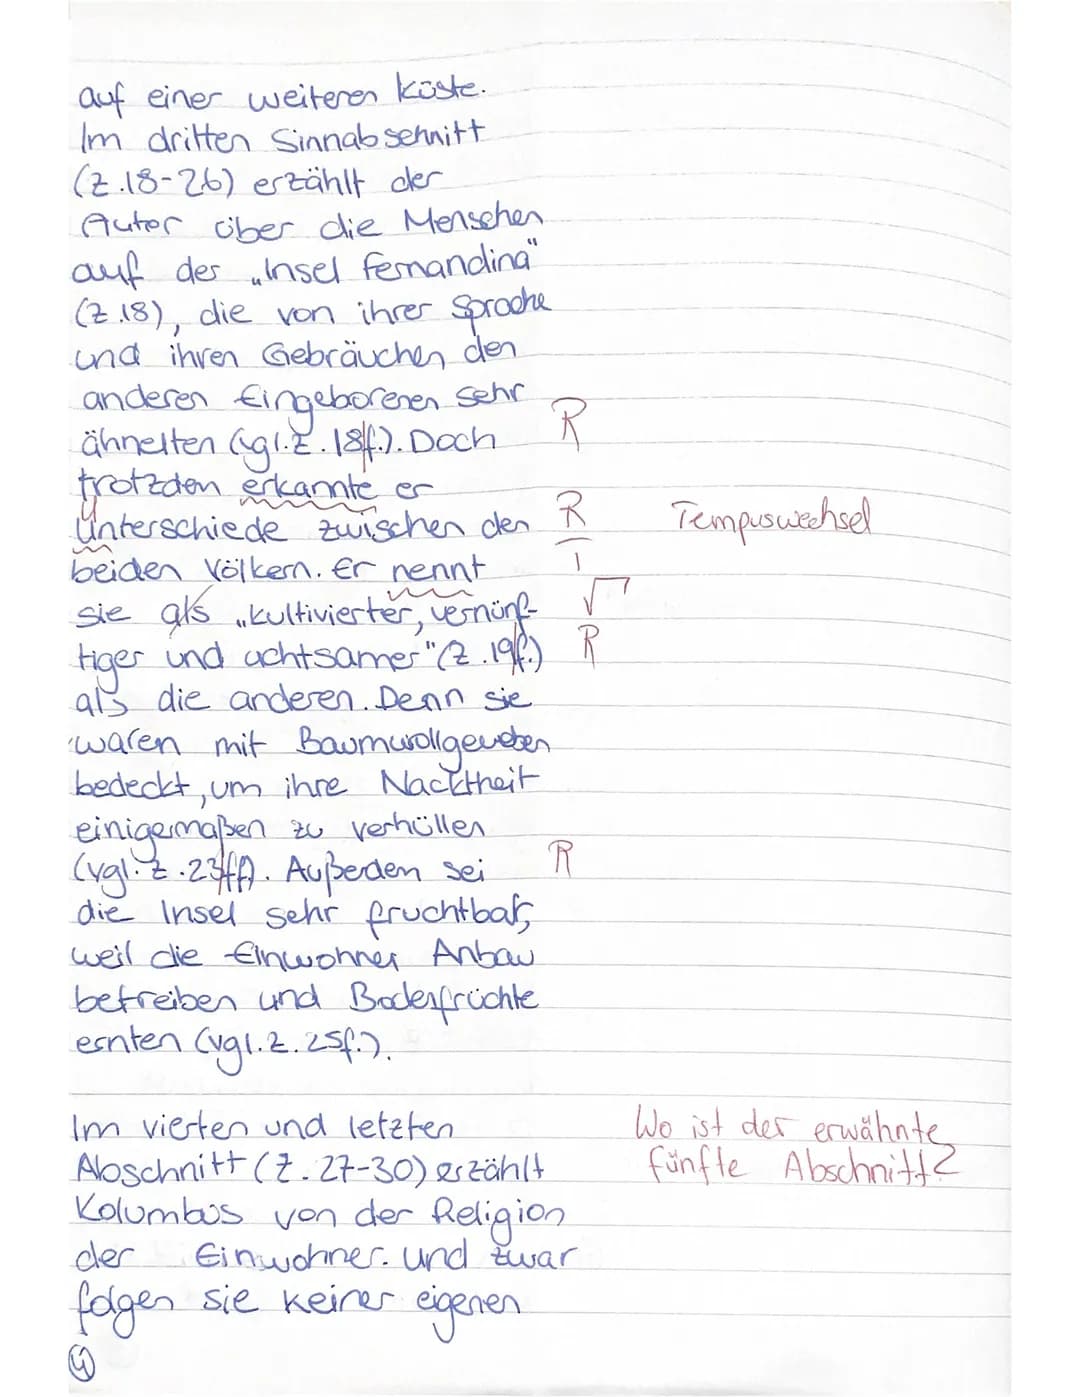 auf einer weiteren Küste.
Im dritten Sinnabschnitt
(Z.18-26) erzählt der
Autor über die Menschen
auf der „Insel Fernandina"
(Z.18), die von ihrer Sprache
und ihren Gebräuchen den
anderen Eingeborenen sehr
ähnelten (vgl.Z.18f.). Doch R
trotzdem erkannte er
Unterschiede zwischen den R Tempuswechsel
beiden Völkern. Er nennt I
sie als „kultivierter, vernünf- √
tiger und achtsamer"(Z.19f.) R
als die anderen. Denn sie
waren mit Baumwollgeweben
bedeckt, um ihre Nacktheit
einigermaßen zu verhüllen
(vgl. Z.23ff). Außerdem sei R
die Insel sehr fruchtbar,
weil die Einwohner Anbau
betreiben und Bodenfrüchte
ernten (vgl.Z.25f.).
Im vierten und letzten Wo ist der erwähnte
Abschnitt (Z.27-30) erzählt fünfte Abschnitt?
Kolumbus von der Religion
der Einwohner. und zwar
folgen sie keiner eigenen
4